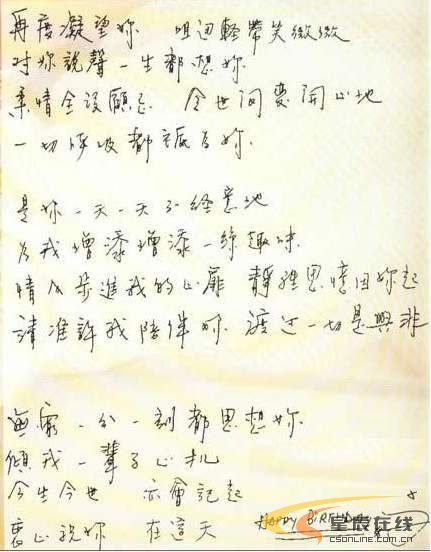 再度凝望妳 咀边輕帶笑微微
对妳說聲一生都想妳
柔情全没顧忌 令世间要開心地
一切呼吸都示為妳
是妳一天一天不经意地
为我增添增添一絲趣味
情人步進我的心扉 靜裡思憶因妳起
請准許我陪伴妳 渡过一切是與非
無窮一分一刻都思想妳
傾我一輩子心扎
今生今世 亦會記起
衷心祝妳 在這天
HAPPY BIRTHDAY
星辰在线
csonline.com.cn